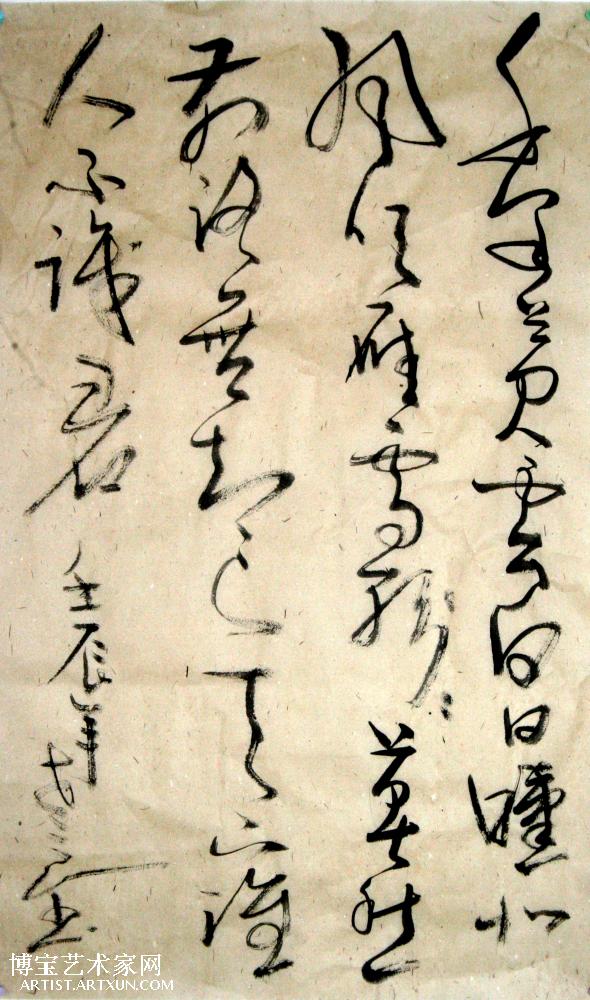 千里黄雲白日曛北
風吹雁雪紛〻莫愁
前路無知己天下誰
人不識君 壬辰年 书
博宝艺术家网
ARTIST.ARTXUN.COM